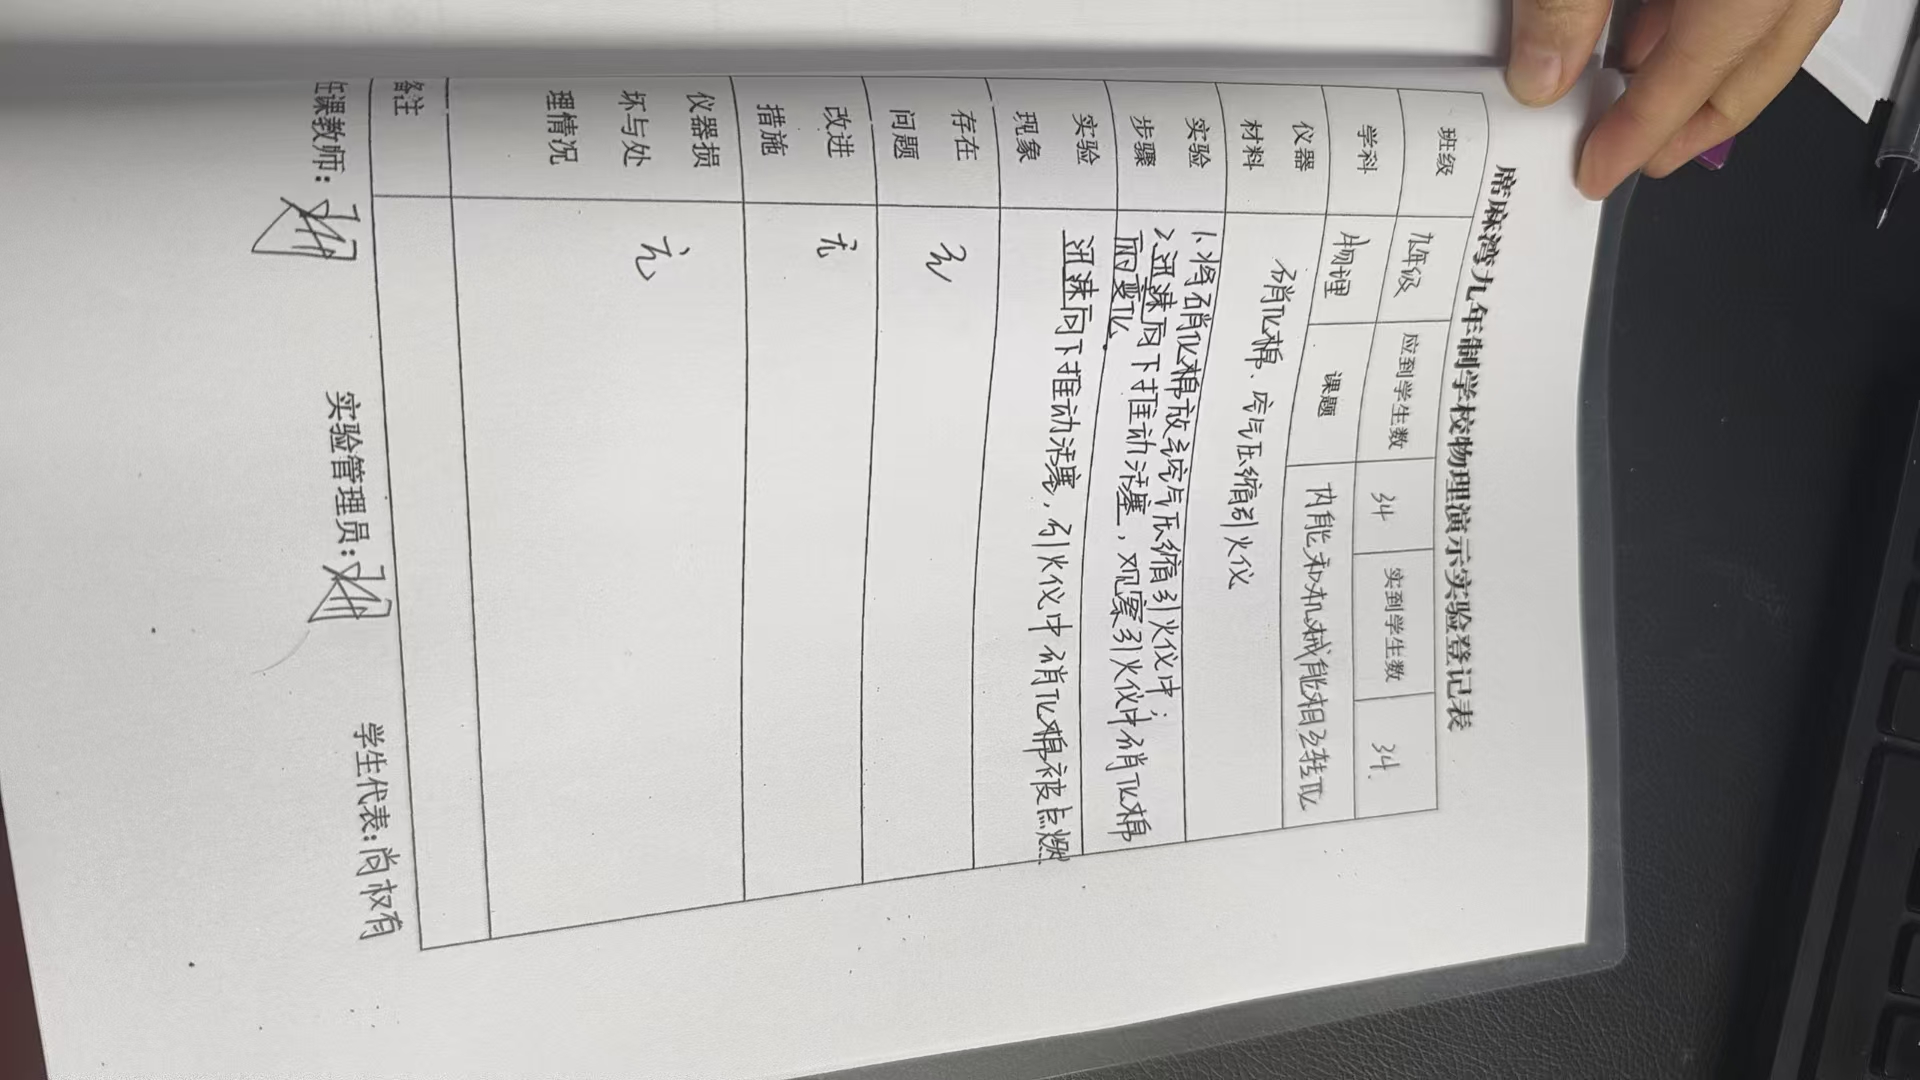 席麻湾九年制学校物理演示实验登记表
班级 九年级 应到学生数 34 实到学生数 34
学科 物理 课题 内能和机械能相互转化
仪器
材料
硝化棉、空气压缩引火仪
实验
步骤
1.将硝化棉放到空气压缩引火仪中；
2.迅速向下推动活塞，观察引火仪中硝化棉
的变化.
实验
现象
迅速向下推动活塞，引火仪中硝化棉被点燃
存在
问题
无
改进
措施
无
仪器损
坏与处
理情况
无
备注
任课教师： 实验管理员： 学生代表：尚权有